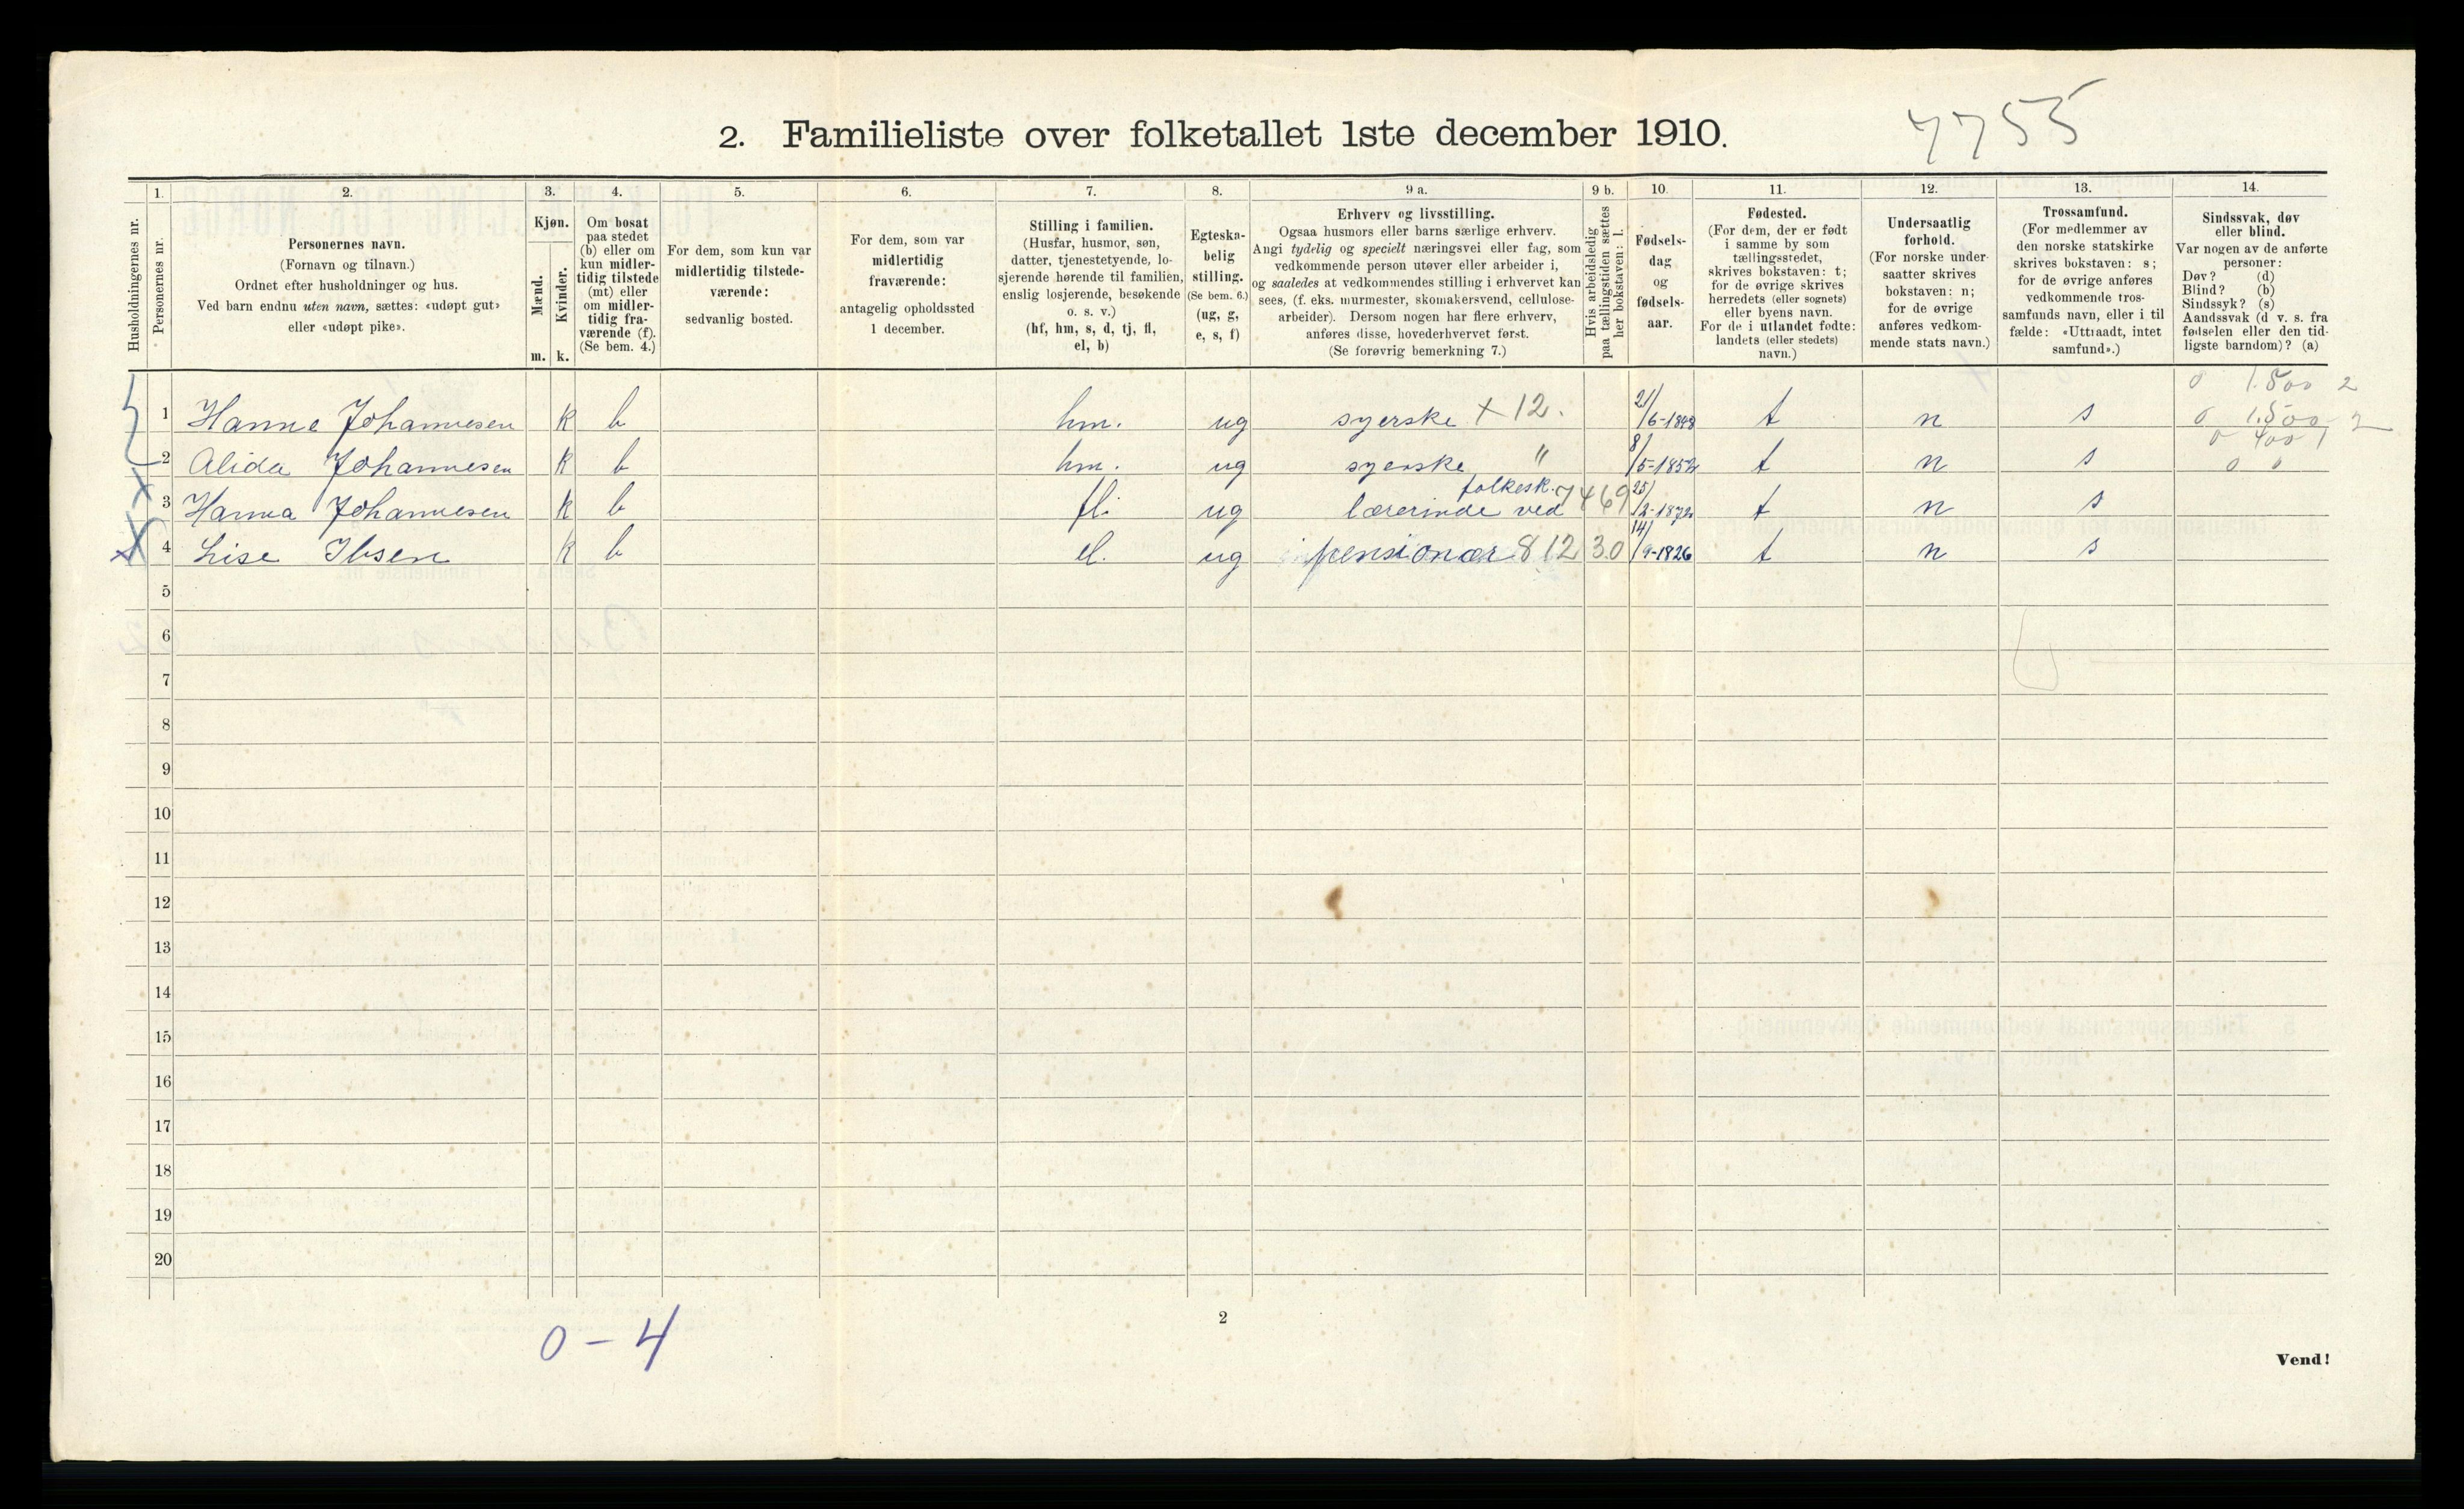 7755
2. Familieliste over folketallet 1ste december 1910.
1. 2. 3. 4. 5. 6. 7. 8. 9 a. 9 b. 10. 11. 12. 13. 14.
Husholdningernes nr.
Personernes nr.
Personernes navn.
(Fornavn og tilnavn.)
Ordnet efter husholdninger og hus.
Ved barn endnu uten navn, sættes: «udøpt gut»
eller «udøpt pike».
Kjøn.
Mænd.
Kvinder.
m. k.
Om bosat
paa stedet
(b) eller om
kun midler-
tidig tilstede
(mt) eller
om midler-
tidig fra-
værende (f).
(Se bem. 4.)
For dem, som kun var
midlertidig tilstede-
værende:
sedvanlig bosted.
For dem, som var
midlertidig
fraværende:
antagelig opholdssted
1 december.
Stilling i familien.
(Husfar, husmor, søn,
datter, tjenestetyende, lo-
sjerende hørende til familien,
enslig losjerende, besøkende
o. s. v.)
(hf, hm, s, d, tj, fl,
el, b)
Egteska-
belig
stilling.
(Se bem. 6.)
(ug, g,
e, s, f)
Erhverv og livsstilling.
Ogsaa husmors eller barns særlige erhverv.
Angi tydelig og specielt næringsvei eller fag, som
vedkommende person utøver eller arbeider i,
og saaledes at vedkommendes stilling i erhvervet kan
sees, (f. eks. murmester, skomakersvend, cellulose-
arbeider). Dersom nogen har flere erhverv,
anføres disse, hovederhvervet først.
(Se forøvrig bemerkning 7.)
Hvis arbeidsledig
paa tællingstiden sættes
her bokstaven: l.
Fødsels-
dag
og
fødsels-
aar.
Fødested.
(For dem, der er født
i samme by som
tællingsstedet,
skrives bokstaven: t;
for de øvrige skrives
herredets (eller sognets)
eller byens navn.
For de i utlandet fødte:
landets (eller stedets)
navn.)
Undersaatlig
forhold.
(For norske under-
saatter skrives
bokstaven: n;
for de øvrige
anføres vedkom-
mende stats navn.)
Trossamfund.
(For medlemmer av
den norske statskirke
skrives bokstaven: s;
for de øvrige anføres
vedkommende tros-
samfunds navn, eller i til
fælde: «Uttraadt, intet
samfund».)
Sindssvak, døv
eller blind.
Var nogen av de anførte
personer:
Døv? (d)
Blind? (b)
Sindssyk? (s)
Aandssvak (d v. s. fra
fødselen eller den tid-
ligste barndom)? (a)
0 1.500 2
1 Hanne Johannesen k b hm. ug syerske X 12. 21/6-1848 t n s 0 1.500 2
0 400 1
2 Alida Johannesen k b hm. ug syerske " 8/5-1852 t n s 0 0
folkesk.
3 Hanna Johannesen k b fl. ug lærerinde ved 7469 25/2-1872 t n s
4 Lise Ibsen k b el. ug pensionær 812 3.0 14/9-1826 t n s
5
6
7
8
9
10
11
12
13
14
15
16
17
18
19
20
0 - 4
2
Vend!